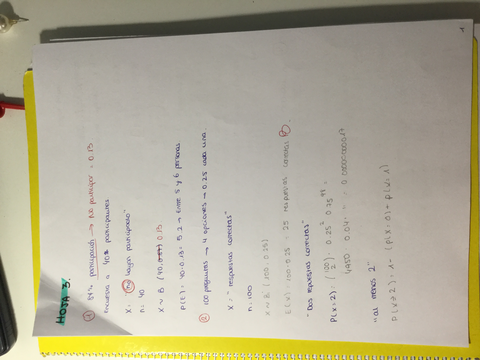 HOJA 3.
① 87% participación → No participan: 0.13
Encuesta a 40 participantes
X: "no hayan participado"
n: 40
X ~ B (40, 0.13
P(E): 40·0.13: 5.2 → Entre 5 y 6 personas
② 100 preguntas → 4 opciones → 0.25 cada una
X: "respuestas correctas"
n: 100
X ~ B (100, 0.25)
E(X): 100·0.25: 25 respuestas correctas
"Dos respuestas correctas"
P(X:2): (100 2) 0.25² 0.75
4950 · 0.04
"al menos 2"
P(X≥2): 1- (P(X:0) + P(X:1)